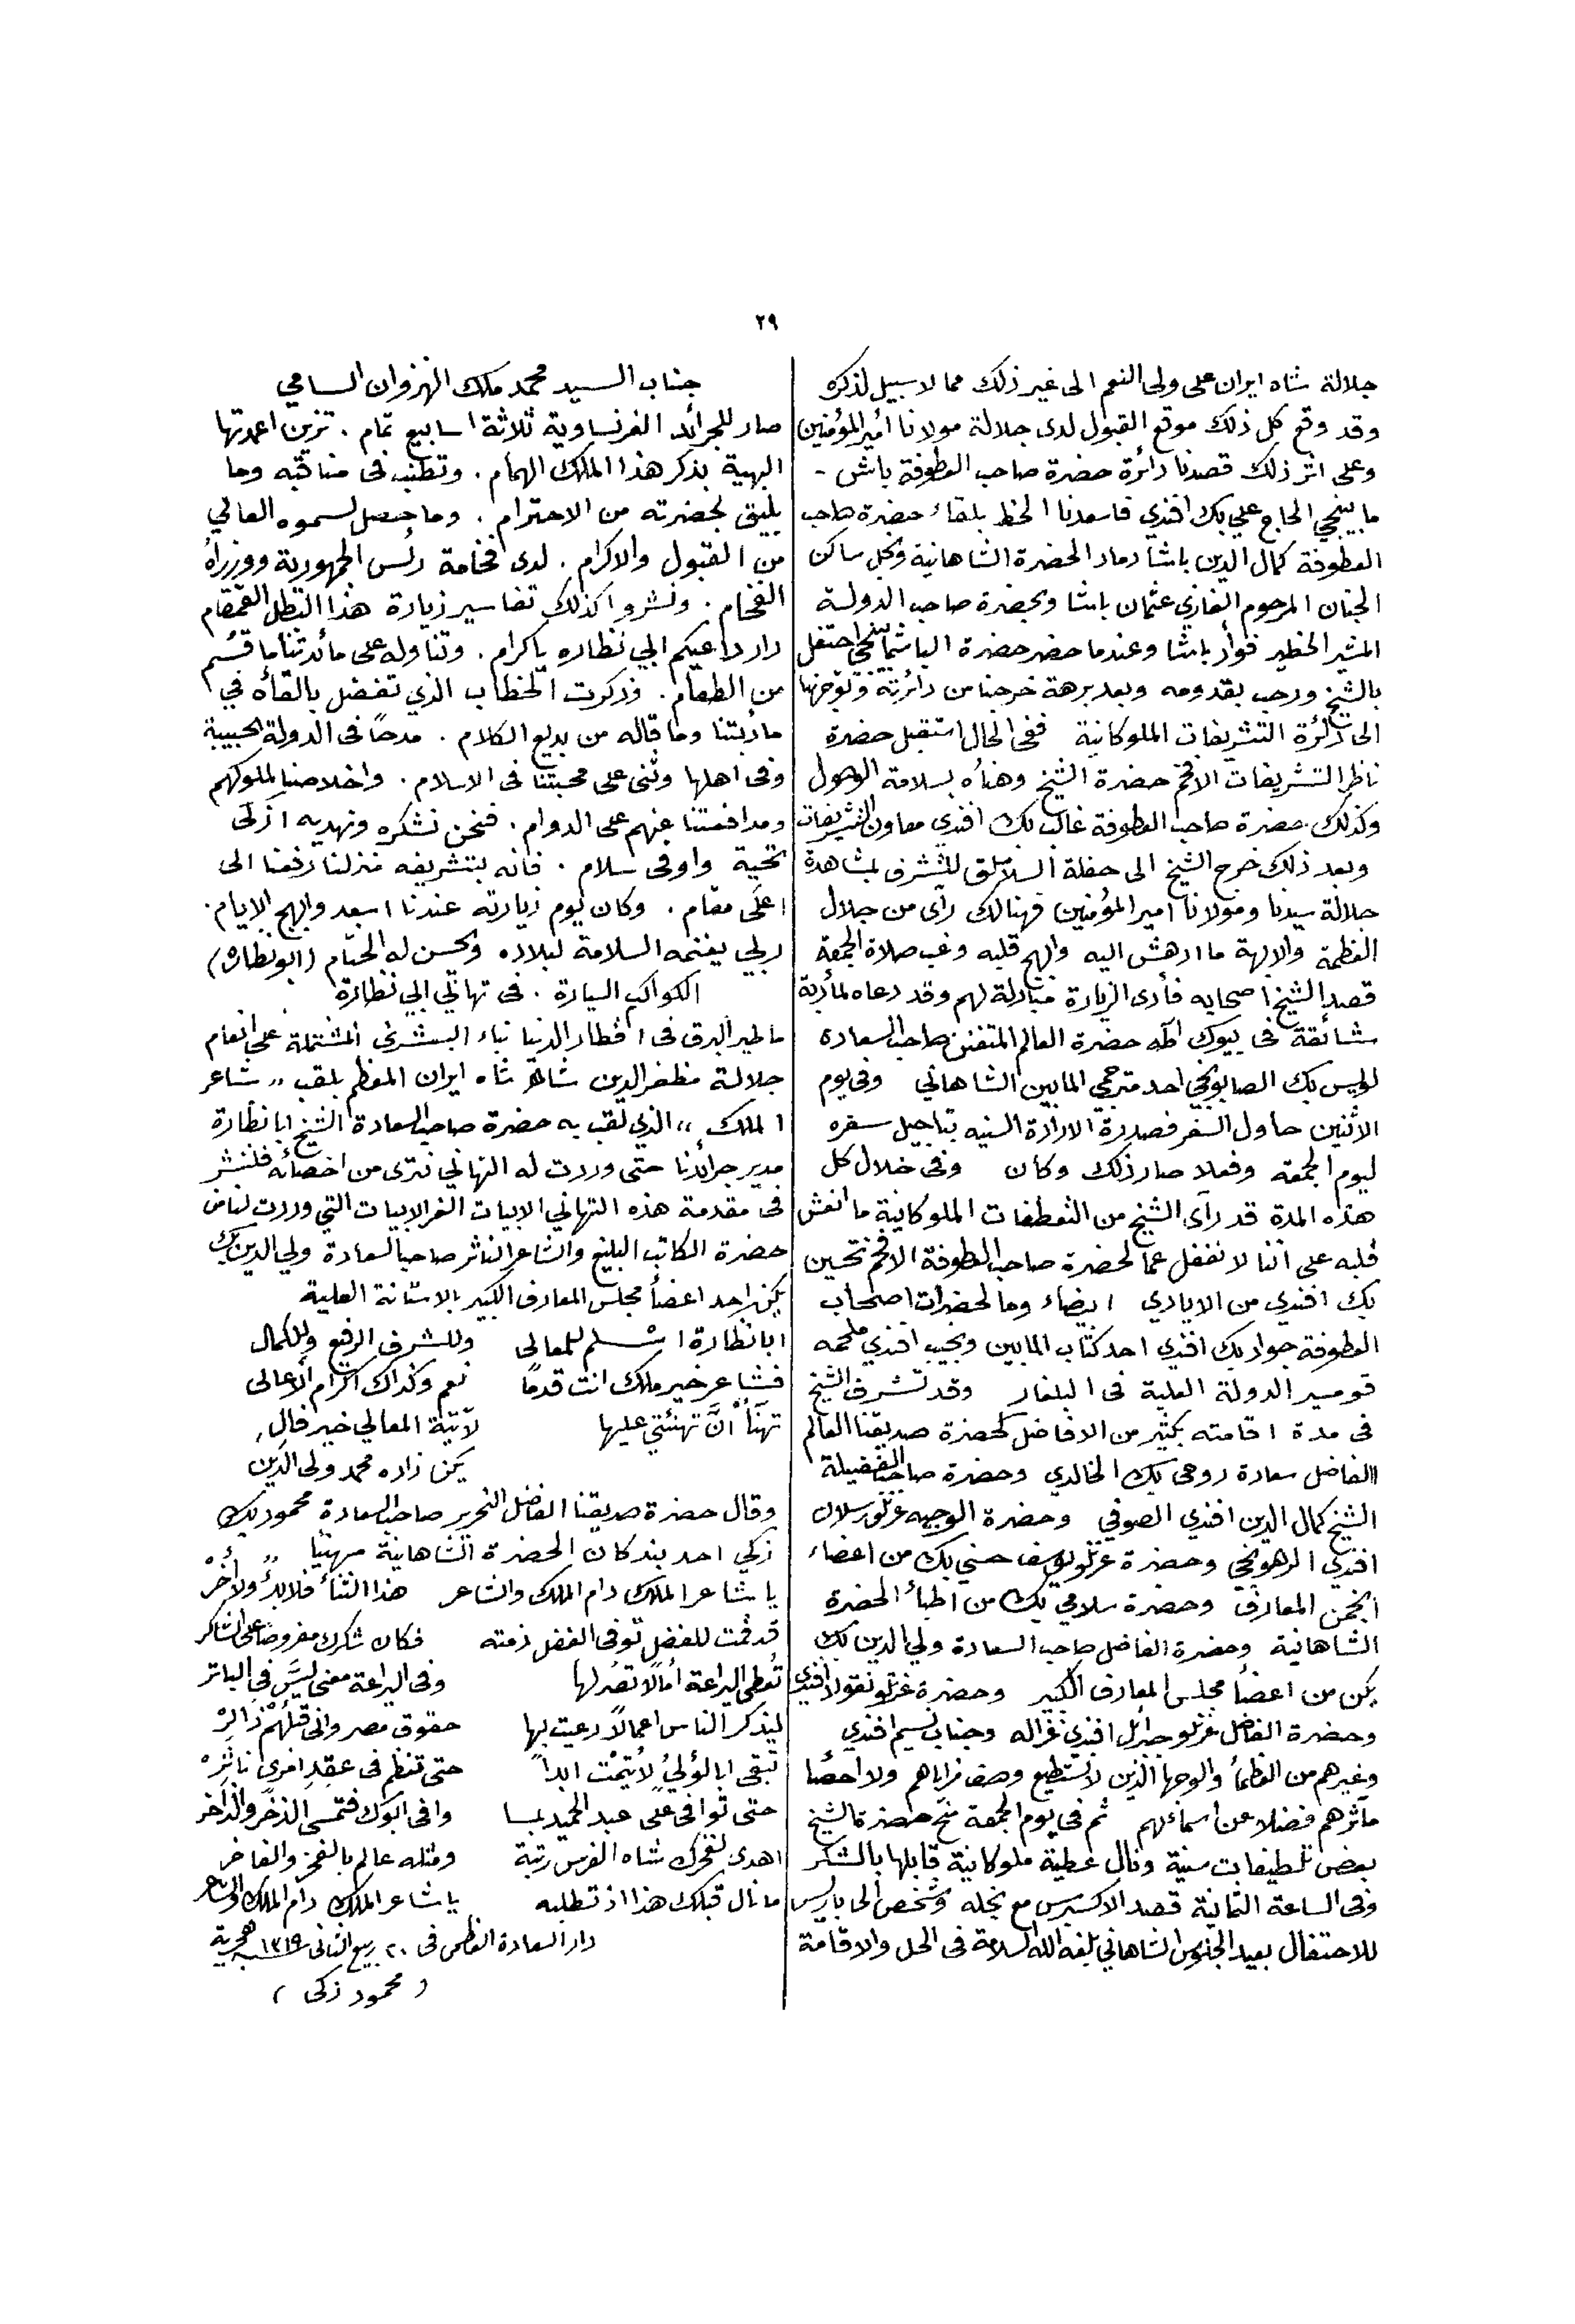 ٢٩
جلالة شاه ايران على ولى النعم الى غير ذلك مما لا سبيل لذكره
وقد وقع كل ذلك موقع القبول لدى جلالة مولانا أمير المؤمنين
وعلى اثر ذلك قصدنا دائرة حضرة صاحب العطوفة باش -
مابينجي الحاج علي بك افندي فاسعدنا الحظ بلقاء حضرة صاحب
العطوفة كمال الدين باشا داماد الحضرة الشاهانية ونجل ساكن
الجنان المرحوم الغازي عثمان باشا وبحضرة صاحب الدولة
المشير الخطير فواد باشا وعندما حضر حضرة الباشمابينجي احتفل
بالشيخ ورحب بقدومه وبعد برهة خرجنا من دائرته وتوجهنا
الى دائرة التشريفات الملوكانية ففي الحال استقبل حضرة
ناظر التشريفات الافخم حضرة الشيخ وهنأه بسلامة الوصول
وكذلك حضرة صاحب العطوفة غالب بك افندي معاون التشريفات
وبعد ذلك خرج الشيخ الى حفلة السلاملق للتشرف بمشاهدة
جلالة سيدنا ومولانا امير المؤمنين فهنالك رآى من جلال
العظمة والابهة ما ادهش اليه وابهج قلبه وغب صلاة الجمعة
قصد الشيخ اصحابه فأدى الزيارة مبادلة لهم وقد دعاه لمأدبة
شائقة فى بيوك اطه حضرة العالم المتفنن صاحب السعاده
لويس بك الصابونجي احد مترجمي المابين الشاهاني وفى يوم
الاثنين حاول السفر فصدرة الارادة السنيه بتاجيل سفره
ليوم الجمعه وفعلا صار ذلك وكان وفى خلال كل
هذه المدة قد رآى الشيخ من التعطفات الملوكانية ما انعش
قلبه على اننا لا نغفل عما لحضرة صاحب العطوفة الافخم تحسين
بك افندي من الايادي البيضاء وما لحضرات اصحاب
العطوفة جواد بك افندي احد كتاب المابين ونجيب افندي ملحمه
قوميسر الدولة العلية فى البلغار وقد تشرف الشيخ
فى مدة اقامته بكثير من الافاضل كحضرة صديقنا العالم
الفاضل سعادة روحى بك الخالدي وحضرة صاحب الفضيلة
الشيخ كمال الدين افندي الصوفي وحضرة الوجيه عزتلو رسلان
افندي وحضرة عزتلو يوسف حسني بك من اعضاء
انجمن المعارف وحضرة سلامي بك من اطباء الحضرة
الشاهانية وحضرة الفاضل صاحب السعادة ولي الدين بك
يكن من اعضأ مجلس المعارف الكبير وحضرة عزتلو نقولا افندي
وحضرة الفاضل عزتلو جبرائل افندي غزاله وجناب نسيم افندي
وغيرهم من العظمأ والوجها الذين لا نستطيع وصف مزاياهم ولا احصا
مآثرهم فضلا عن اسمائهم ثم في يوم الجمعة منح حضرة الشيخ
بعض تلطيفات سنية ونال عطية ملوكانية قابلها بالشكر
وفى الساعة الثمانية قصد الاكسبرس مع نجله وشخص الى باريس
للاحتفال بعيد الجلوس الشاهاني بلغه الله السلامة فى الحل والاقامة
جناب السيد محمد ملك النهزوان السامي
صار للجرائد الفرنساوية ثلاثة اسابيع تمام . تزين اعمدتها
البهية بذكر هذا الملك الهمام . وتطنب فى مناقبه وما
يليق لحضرته من الاحترام . وما حصل لسموه العالي
من القبول والاكرام . لدى فخامة رئس الجمهورية ووزراه
الفخام . ونشروا كذلك تفاسير زيارة هذا البطل القمقام
دار داعيكم ابي نظاره باكرام . وتناوله على مائدتنا ما قسم
من الطعام . وذكرت الخطاب الذي تفضل بالقأه في
مأدبتنا وما قاله من بديع الكلام . مدحاً فى الدولة الحبيبة
وفى اهلها وثنى على محبتنا فى الاسلام . واخلاصنا لملوكهم
ومدافعتنا عنهم على الدوام . فنحن نشكره ونهديه ازكى
تحية واوفى سلام . فانه بتشريفه منزلنا رفعنا الى
اعلى مقام . وكان يوم زيارته عندنا اسعد وابهج الايام .
ربي يغنمه السلامة لبلاده ويحسن له الختام (ابو نظاره)
الكواكب السيارة . فى تهاني ابي نظارة
ما طير البرق فى اقطار الدنيا نباء البشرى المشتملة على انعام
جلالة مظفر الدين شاه ايران المعظم بلقب ,, شاعر
الملك ,, الذي لقب به حضرة صاحب السعادة الشيخ ابا نظارة
مدير جرائدنا حتى وردت له التهاني تترى من اخصائه فلننشر
فى مقدمة هذه التهاني الابيات الغر الابيات التي وردت لنا من
حضرة الكاتب البليغ والشاعر الناثر صاحب السعادة ولي الدين بك
يكن احد اعضأ مجلس المعارف الكبير بالاستانة العلية
ابا نظارة اسلم للمعالى وللشرف الرفيع وللكمال
فشاعر خير ملك انت قدماً نعم وكذاك اكرام الأعالى
تهنّأ أنَّ تهنئتي عليها لآتية المعالي خير فال
يكن زاده محمد ولى الدين
وقال حضرة صديقنا الفاضل النحرير صاحب السعادة محمود بك
زكي احد بندكان الحضرة الشاهانية مهنيأ
يا شاعر الملك دام الملك والشاعر هذا الثناء فلا بدءٌ ولا آخر
قد قمت للفضل توفى الفضل ذمته فكان شكرك مفروضا على الشاكر
تُعطى اليراعة آمالاً تصُر لها وفى اليراعة معنى ليسَ في الباتر
ليذكر الناس اعمالاً دعيت بها حقوق مصر وانى قبلهُمْ ذاكرْ
تبقى ابا لؤلؤٍ لا يَتِمْت ابداً حتى تنظم فى عِقدٍ امرئ ناثِرْ
حتى توافى على عبد الحميد بما وافى ابوك فتمسى الذخر والذاخر
اهدى لفخرك شاه الفرس رتبة ومثله عالم بالفخر والفاخر
ما نال قبلك هذا اذ تطلبه يا شاعر الملك دام الملك والشاعر
دار السعادة العظمى فى ٢٠ ربيع الثانى سنة ١٣١٩ هجرية
( محمود زكى )